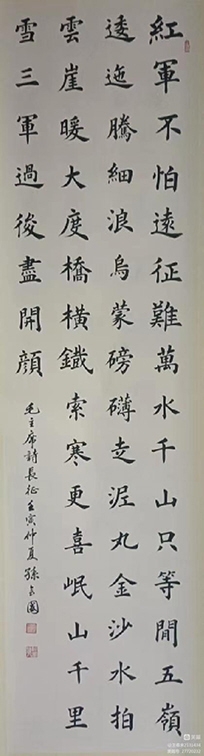 紅軍不怕遠征難萬水千山只等閒五嶺
逶迤騰細浪烏蒙磅礡走泥丸金沙水拍
雲崖暖大度橋橫鐵索寒更喜岷山千里
雪三軍過後盡開顔
毛主席詩長征壬寅仲夏孫占國